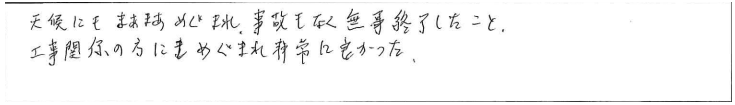 天候にもまあまあめぐまれ、事故もなく無事終了したこと、
工事関係の方にもめぐまれ非常に良かった、